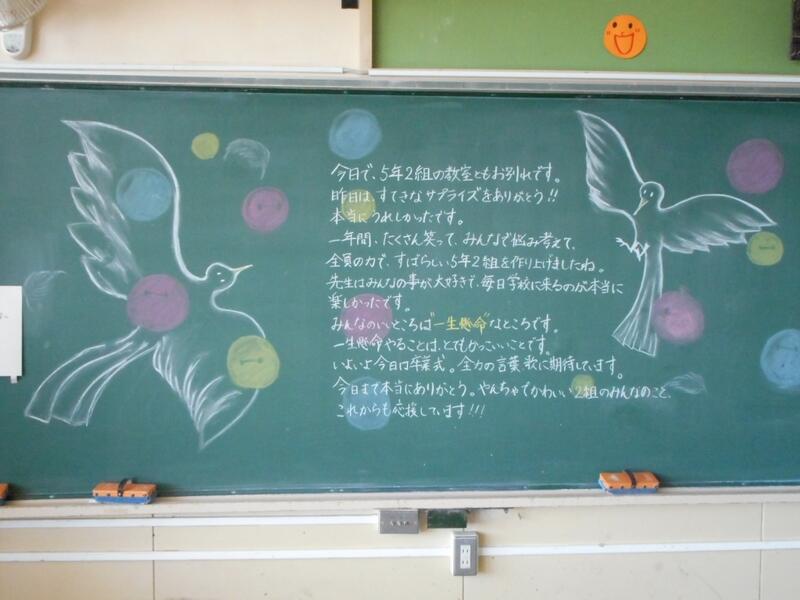 今日で、5年2組の教室ともお別れです。
昨日は、すてきなサプライズをありがとう!!
本当にうれしかったです。
一年間、たくさん笑って、みんなで悩み考えて、
全員の力で、すばらしい5年2組を作り上げましたね。
先生はみんなの事が大好きで、毎日学校に来るのが本当に
楽しかったです。
みんなのいいところは"一生懸命"なところです。
一生懸命やることは、とてもかっこいいことです。
いよいよ今日は卒業式。全力の言葉、歌に期待しています。
今日まで本当にありがとう。やんちゃでかわいい2組のみんなのこと、
これからも応援しています!!!